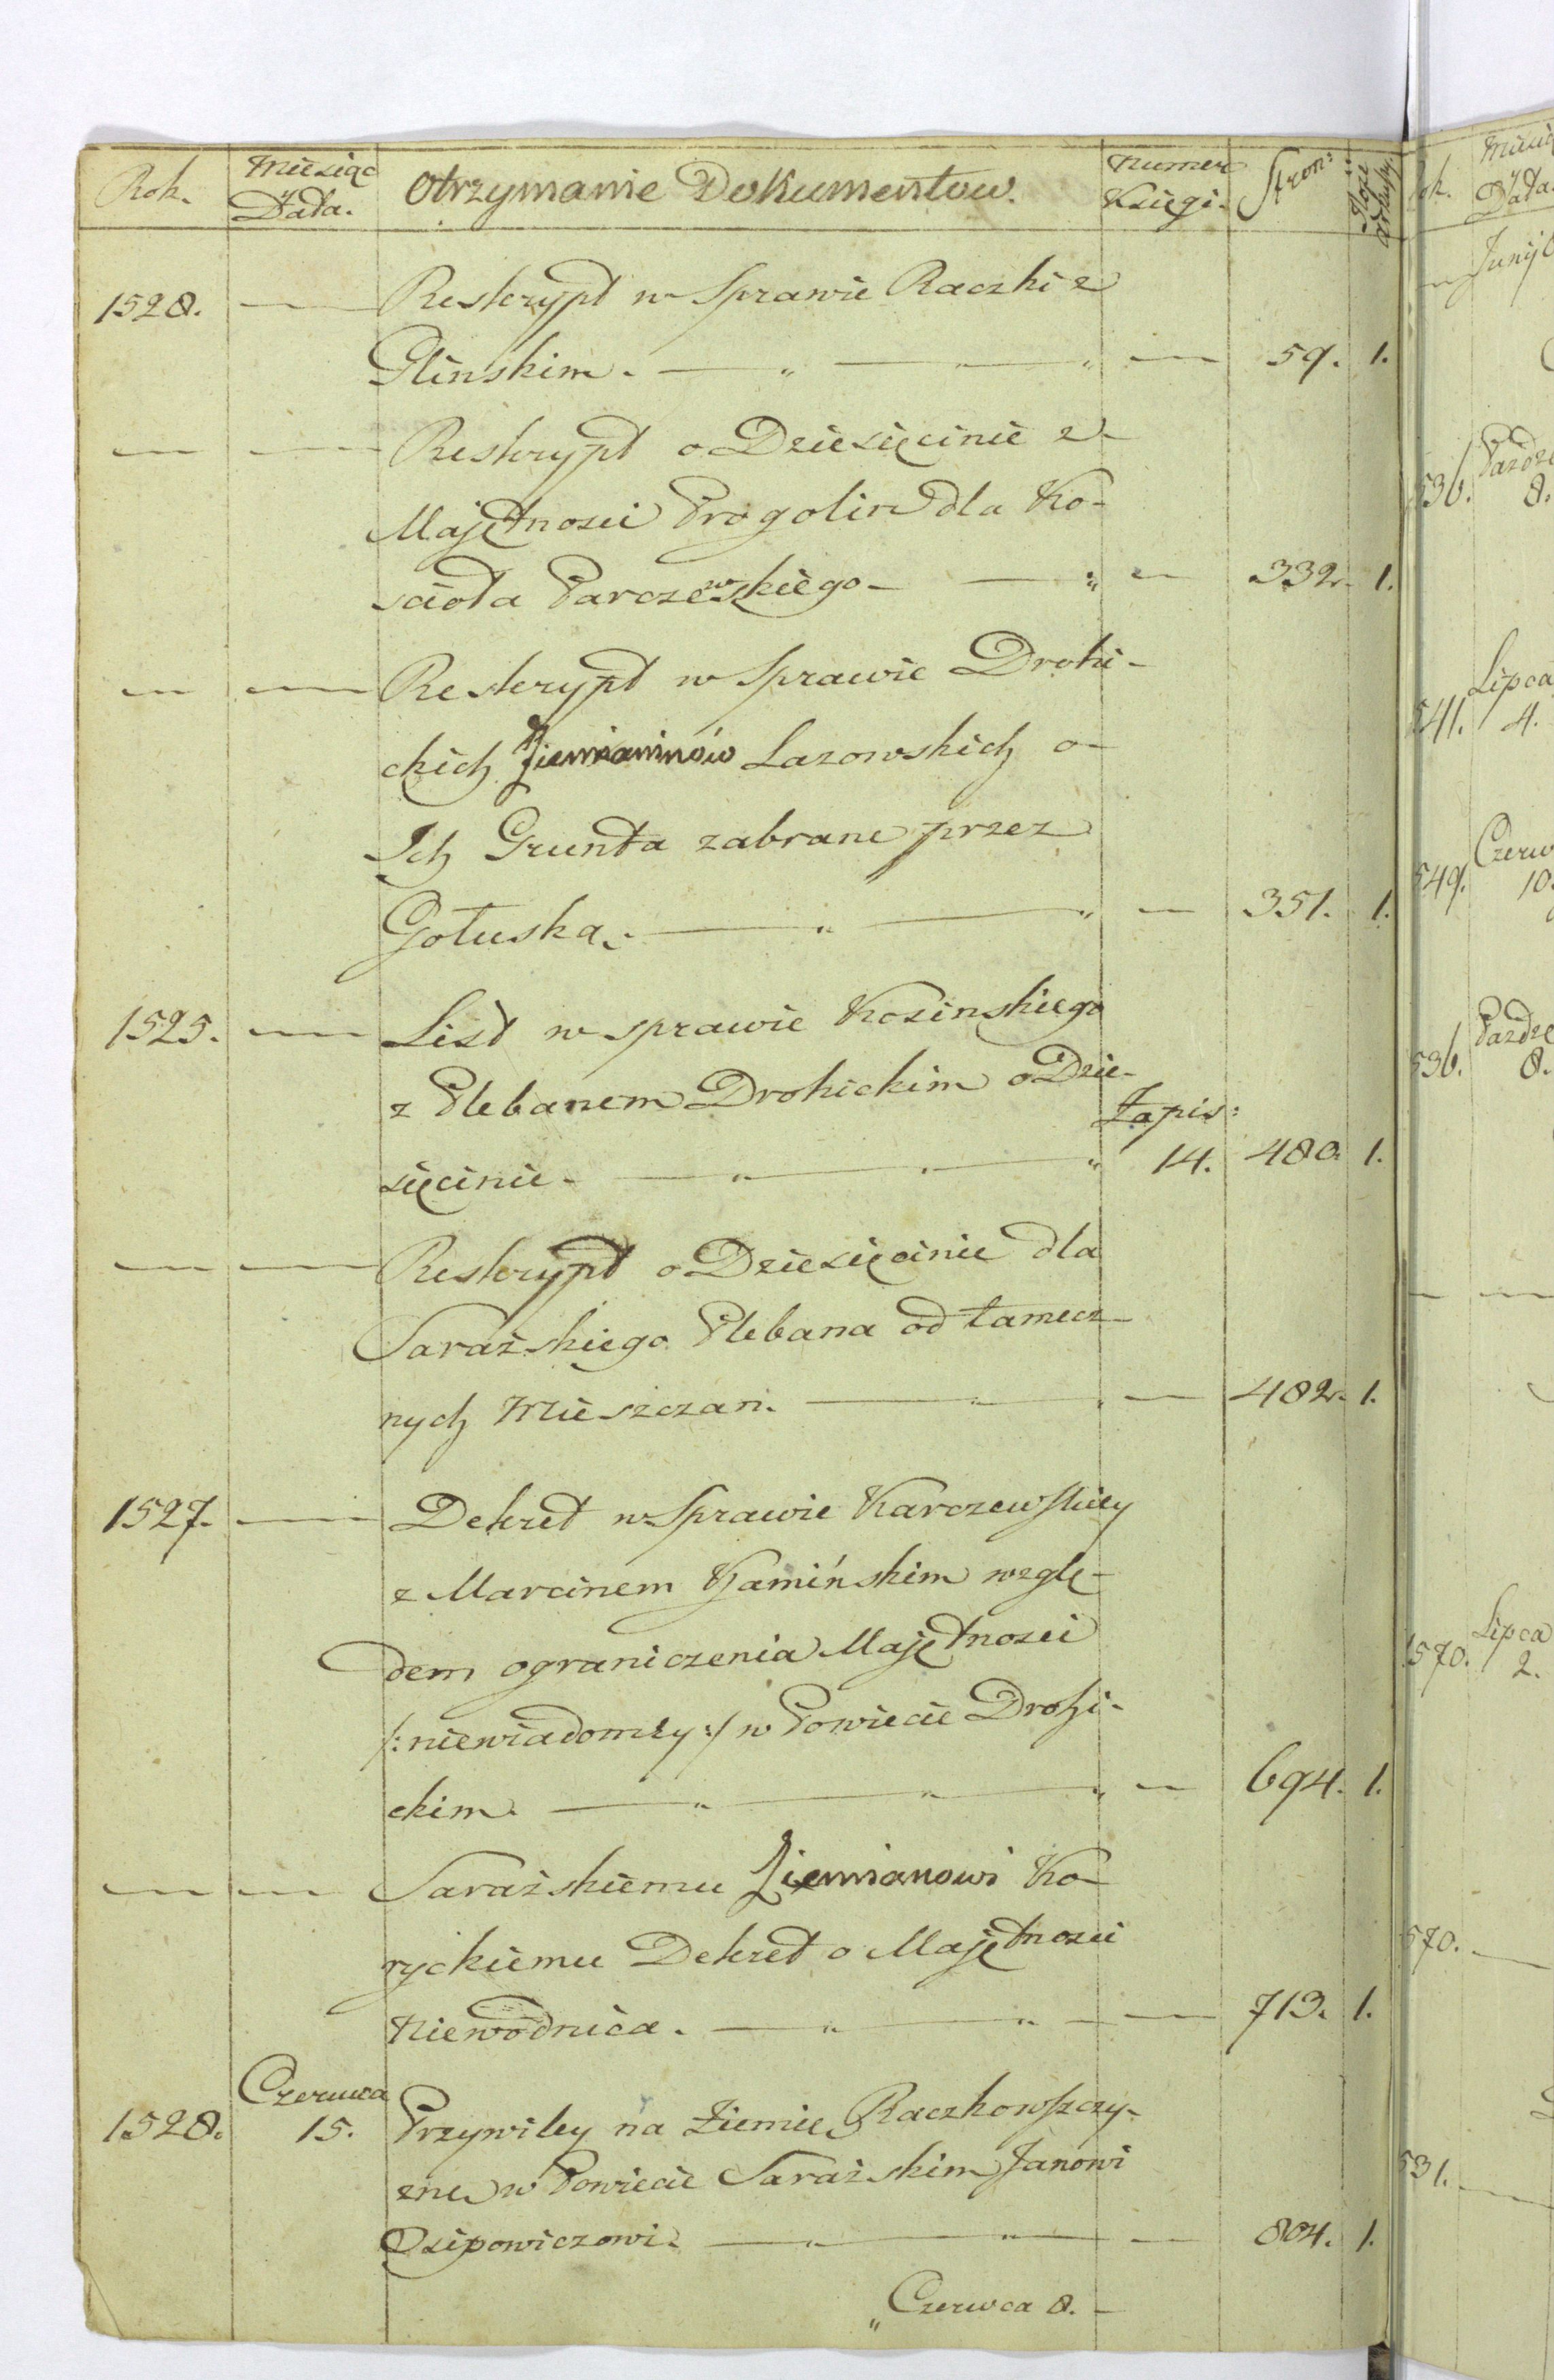 Rok. Miesiąc Data. Otrzymanie Dokumentow. Numer Księgi. Stron: Ilość arkuszy.
1528. — Reskrypt w Sprawie Raczki z
Glinskim. — " — " — 59. 1.
— — Reskrypt o Dziesięcinie z
Majętnosci Progolin dla Ko-
scioła Parczewskiego — " — 332. 1.
— — Reskrypt w Sprawie Drohi-
ckich Ziemianinów Lazowskich o
Ich Grunta zabrane przez
Gołuska. — " — " — 351. 1.
1525. — List w sprawie Kosinskiego
z Plebanem Drohickim o Dzie-
sięcinie. — " — " Zapis: 14. 480. 1.
— — Reskrypt o Dziesięcinie dla
Sarażskiego Plebana od tamecz-
nych Mieszczan. — " — 482. 1.
1527. — Dekret w Sprawie Karczewskiey
z Marcinem Kamińskim wzglę-
dem ograniczenia Majętnosci
/:niewiadomey:/ w Powiecie Drohi-
ckim. — " — " — " — 694. 1.
— — Sarażskiemu Ziemianowi Ko-
ryckiemu Dekret o Majętnosci
Niewodnica. — " — " — 713. 1.
1528. Czerwca 15. Przywiley na Ziemię Raczkowszczy-
znę w Powiecie Sarażskim Janowi
Osipowiczowi. — " — " — 804. 1.
" Czerwca 8. —
Miesią
Data.
Junij
536. Pazdz
8.
541. Lipca
4.
549. Czerw
10.
536. Pazdze
8.
1570. Lipca
2.
570. —
531. —